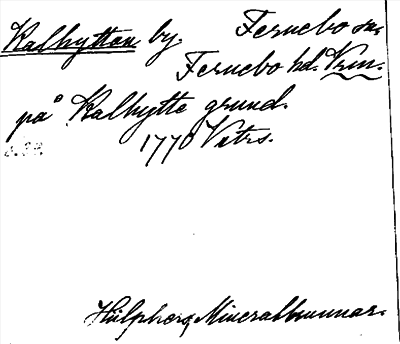 Kalhyttan by. Fernebo sn.
Fernebo hd. Vrm.
på Kalhytte grund.
1770 Vetrs.
Hülphers, Mineralbrunnar.